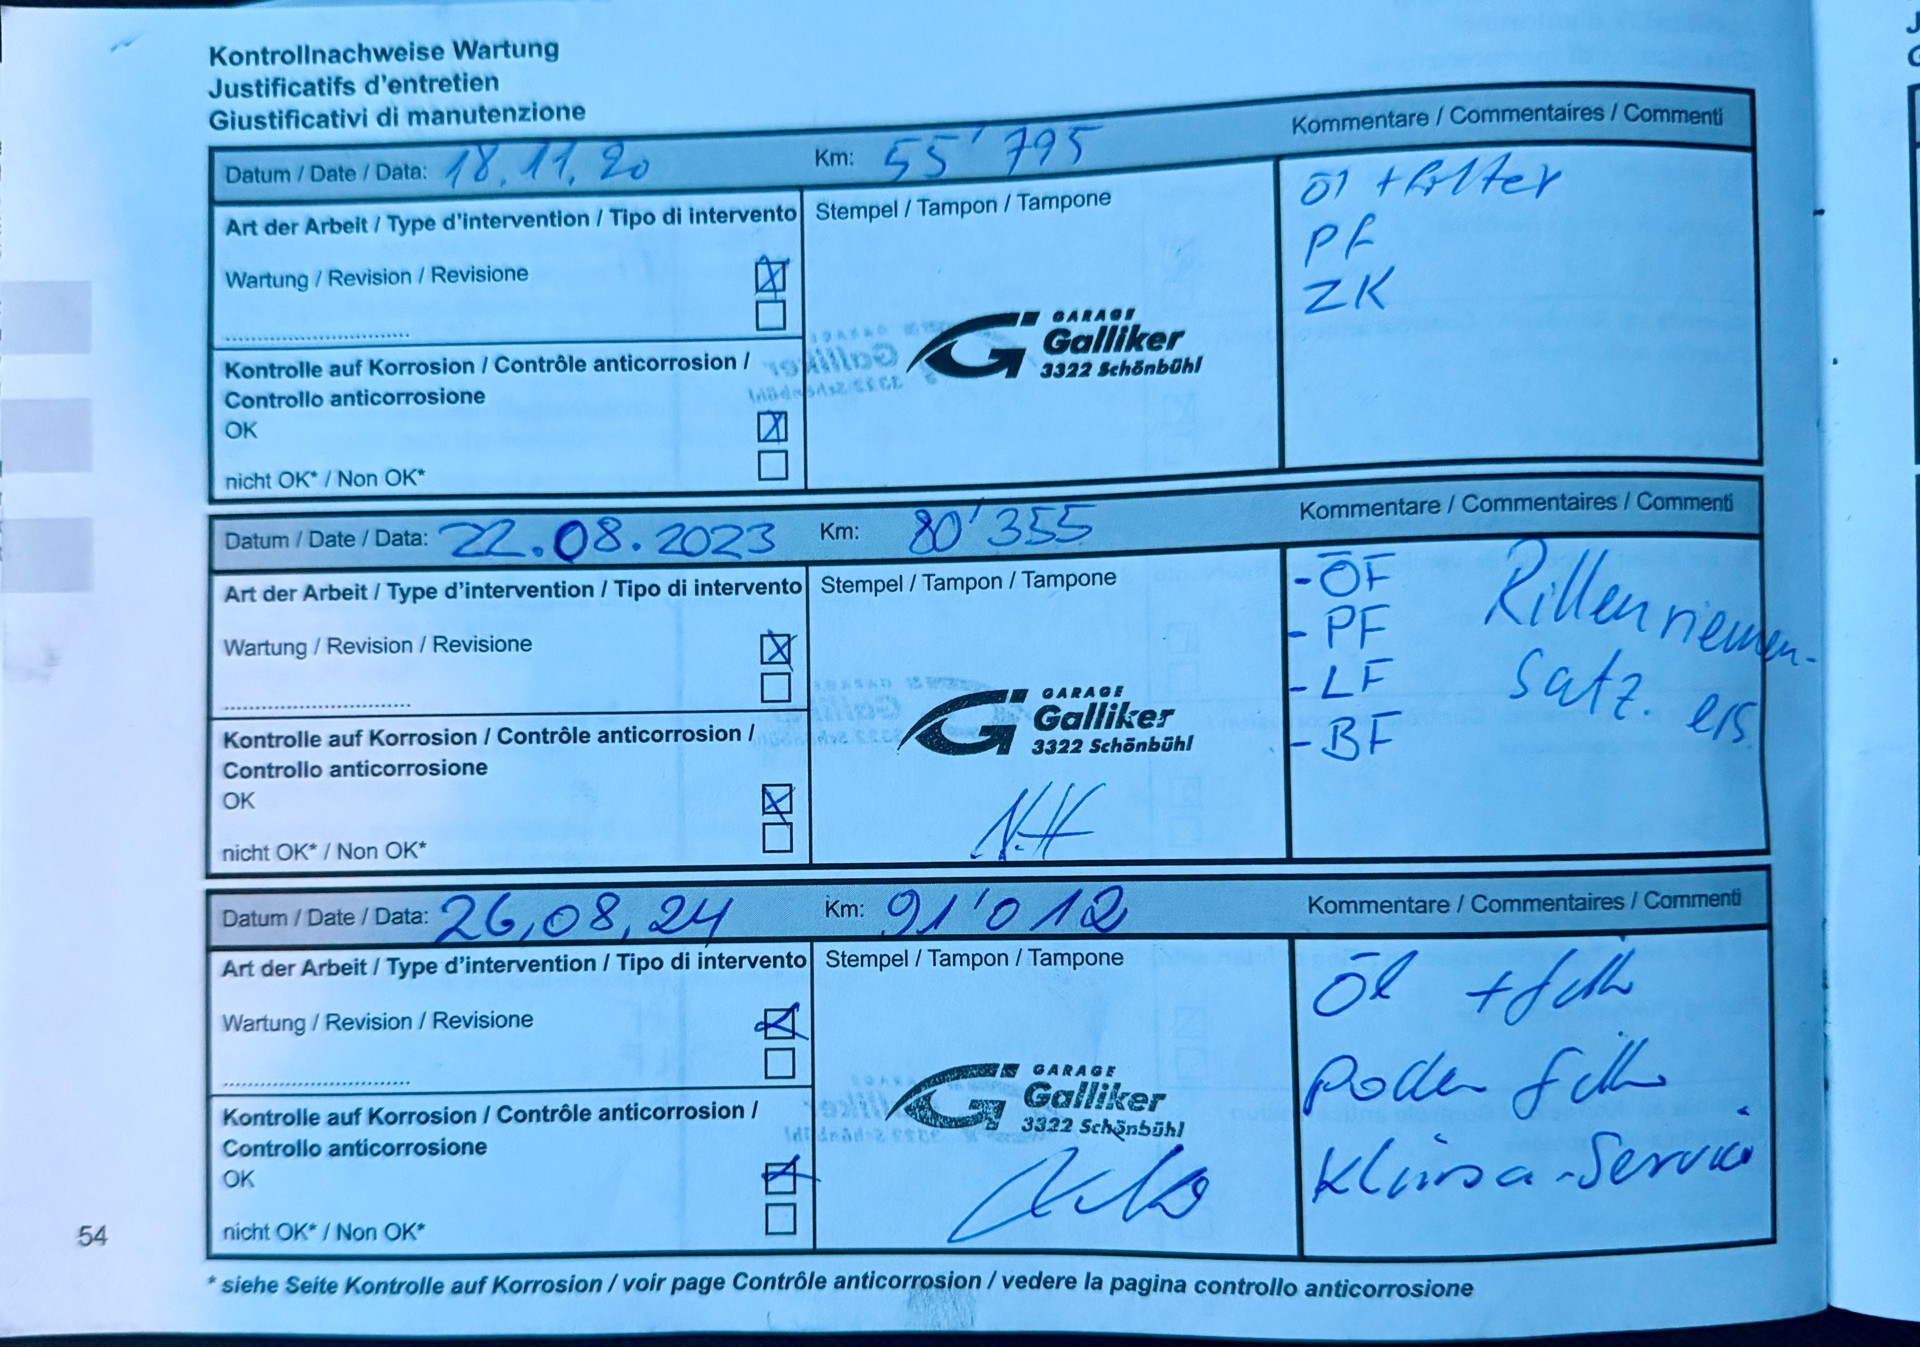 Kontrollnachweise Wartung
Justificatifs d'entretien
Giustificativi di manutenzione
Datum / Date / Data: 18.11.20 Km: 55'795 Kommentare / Commentaires / Commenti
Art der Arbeit / Type d'intervention / Tipo di intervento
Wartung / Revision / Revisione
Kontrolle auf Korrosion / Contrôle anticorrosion /
Controllo anticorrosione
OK
nicht OK* / Non OK*
Stempel / Tampon / Tampone
GARAGE
Galliker
3322 Schönbühl
Öl + Filter
PF
ZK
Datum / Date / Data: 22.08.2023 Km: 80'355 Kommentare / Commentaires / Commenti
Art der Arbeit / Type d'intervention / Tipo di intervento
Wartung / Revision / Revisione
Kontrolle auf Korrosion / Contrôle anticorrosion /
Controllo anticorrosione
OK
nicht OK* / Non OK*
Stempel / Tampon / Tampone
GARAGE
Galliker
3322 Schönbühl
N.H
- ÖF
- PF
- LF
- BF
Rillenriemen-
satz. ers.
Datum / Date / Data: 26.08.24 Km: 91'012 Kommentare / Commentaires / Commenti
Art der Arbeit / Type d'intervention / Tipo di intervento
Wartung / Revision / Revisione
Kontrolle auf Korrosion / Contrôle anticorrosion /
Controllo anticorrosione
OK
nicht OK* / Non OK*
Stempel / Tampon / Tampone
GARAGE
Galliker
3322 Schönbühl
Öl + Filter
Pollen Filter
Klima-Service
54
* siehe Seite Kontrolle auf Korrosion / voir page Contrôle anticorrosion / vedere la pagina controllo anticorrosione